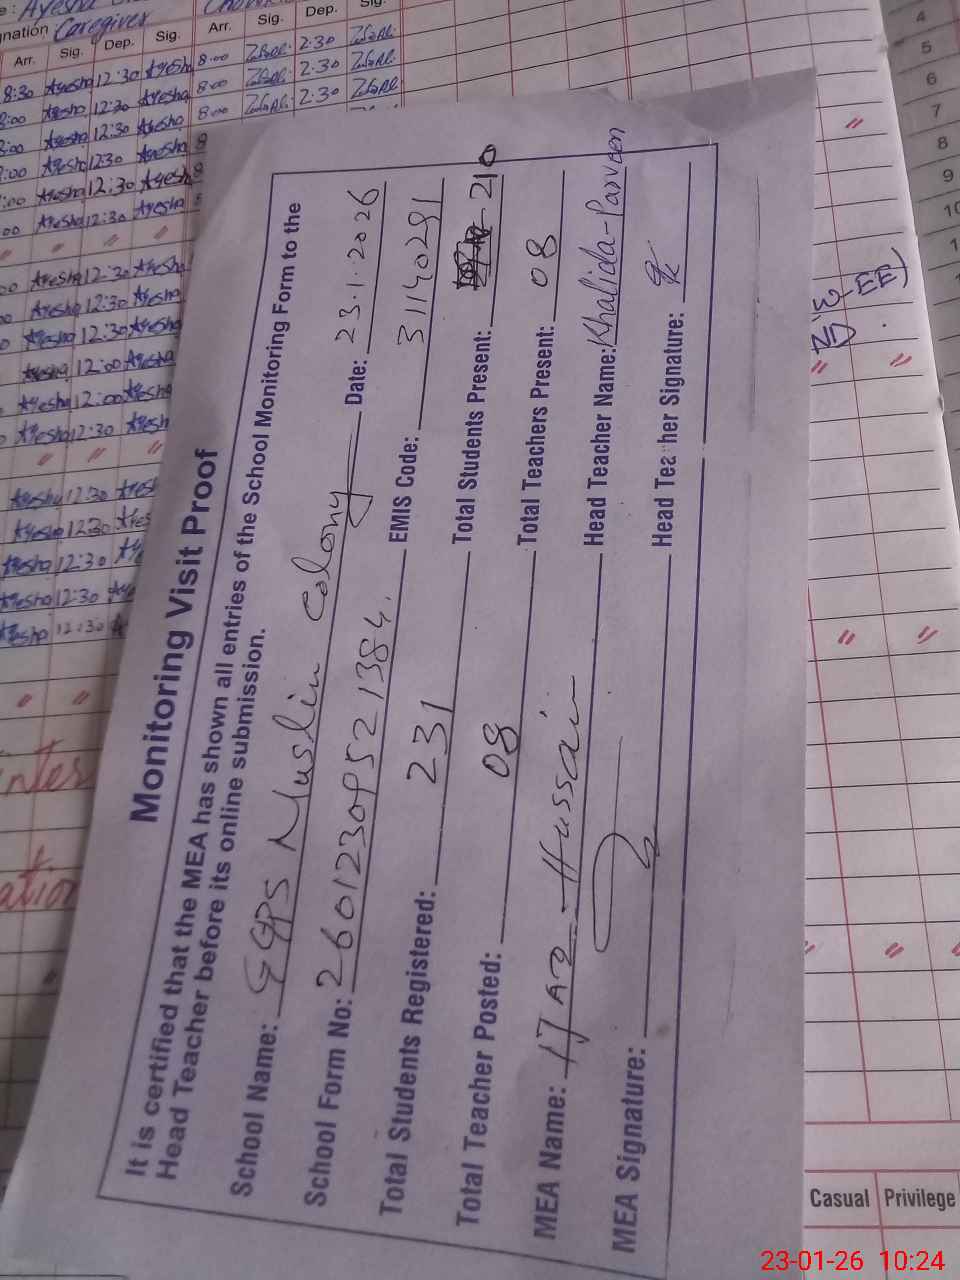 Monitoring Visit Proof
It is certified that the MEA has shown all entries of the School Monitoring Form to the
Head Teacher before its online submission.
School Name: GGPS Muslim Colony Date: 23.1.2026
School Form No: 26012309521384. EMIS Code: 31140291
Total Students Registered: 231 Total Students Present: 210
Total Teacher Posted: 08 Total Teachers Present: 08
MEA Name: IJAZ Hussain Head Teacher Name: Khalida-Parveen
MEA Signature: Head Teacher Signature:
Caregiver
Arr. Sig. Dep. Sig. Arr. Sig. Dep. Sig.
8:30 Ayesha 12:30 Ayesha 8:00 2:30
8:00 Ayesha 12:30 Ayesha 8:00 2:30
Ayesha 12:30 Ayesha 8:00 2:30
Ayesha 12:30 Ayesha 8
Ayesha 12:30 Ayesha
Ayesha 12:30 Ayesha
Ayesha 12:30 Ayesha
Ayesha 12:30 Ayesha
Ayesha 12:30 Ayesha
Ayesha 12:00 Ayesha
Ayesha 12:00 Ayesha
Ayesha 12:30 Ayesh
Ayesha 12:30 Ayes
Ayesha 12:30 Ayes
Ayesha 12:30
Ayesha 12:30
Ayesha 12:30
4
5
6
7
8
9
10
EE)
Casual Privilege
23-01-26 10:24